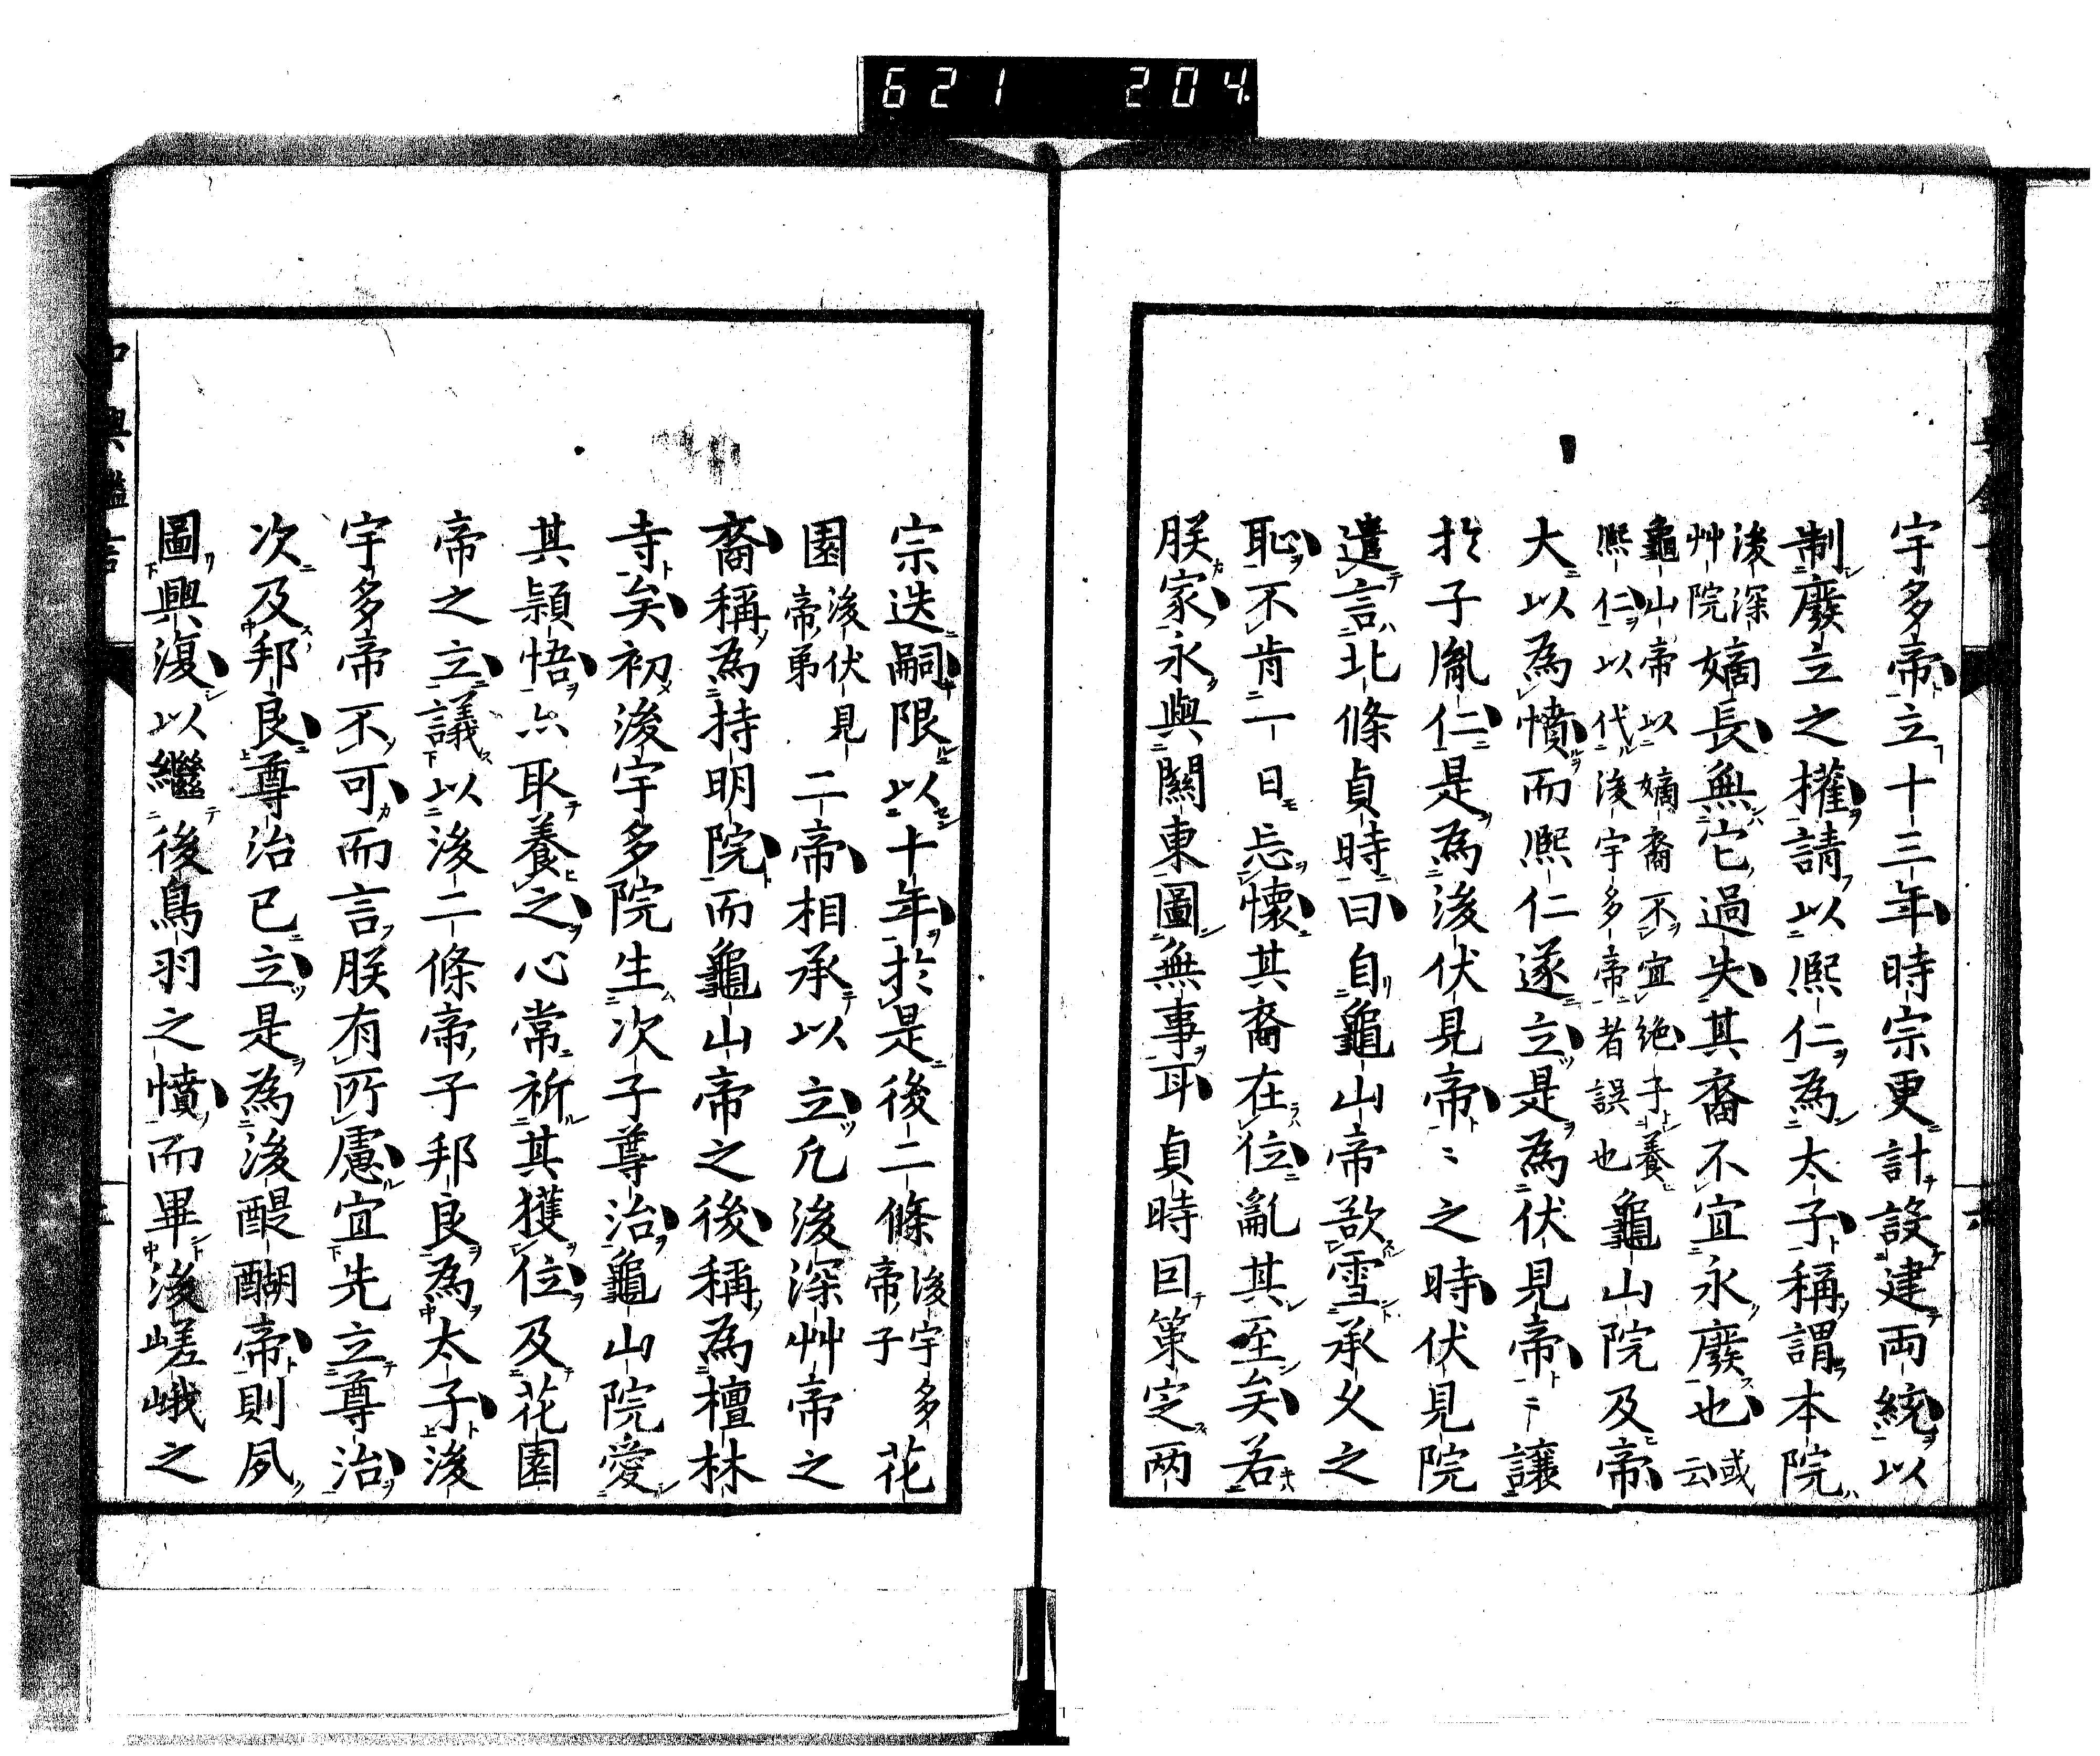 621 204
宇多帝立十三年時宗更計設建両統以
制廢立之權請以熈仁為太子稱謂本院
後深艸院嫡長無它過失其裔不宜永廢也或云
龜山帝以嫡裔不宜絶子養熈仁以代後宇多帝者誤也龜山院及帝
大以為憤而熈仁遂立是為伏見帝二讓
於子胤仁是為後伏見帝〻之時伏見院
遣言北條貞時曰自龜山帝欲雪承久之
恥不肯一日忘懷其裔在位亂其至矣若
朕家永與關東圖無事耳貞時回策定两
宗迭嗣限以十年於是後二條後宇多帝子花
園後伏見帝弟二帝相承以立凡後深艸帝之
裔稱為持明院而龜山帝之後稱為檀林
寺矣初後宇多院生次子尊治龜山院愛
其頴悟亦取養之心常祈其獲位及花園
帝之立議以後二條帝子邦良為太子後
宇多帝不可而言朕有所慮宜先立尊治
次及邦良尊治已立是為後醍醐帝則夙
圖興復以繼後鳥羽之憤而畢後嵯峨之
中興鑑言